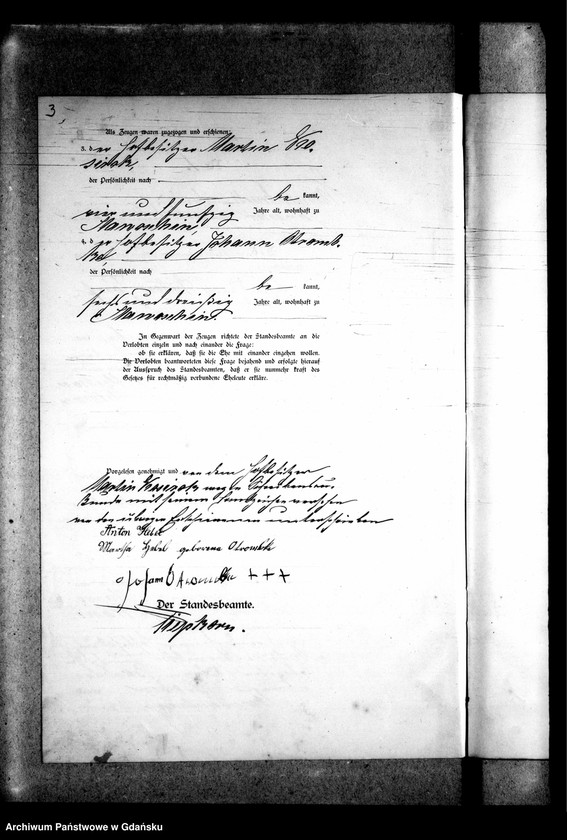 3
Als Zeugen waren zugezogen und erschienen:
3. der Hofbesitzer Martin
der Persönlichkeit nach
be kannt,
vier und fünfzig Jahre alt, wohnhaft zu
4. der Hofbesitzer Johann
der Persönlichkeit nach
be kannt,
sechs und dreißig Jahre alt, wohnhaft zu
In Gegenwart der Zeugen richtete der Standesbeamte an die
Verlobten einzeln und nach einander die Frage:
ob sie erklären, daß sie die Ehe mit einander eingehen wollen.
Die Verlobten beantworteten diese Frage bejahend und erfolgte hierauf
der Ausspruch des Standesbeamten, daß er sie nunmehr kraft des
Gesetzes für rechtmäßig verbundene Eheleute erkläre.
Vorgelesen genehmigt und von dem Hofbesitzer
Martin wegen Schreibensun
kunde mit seinem Handzeichen versehen
von den übrigen Erschienenen unterschrieben
Anton
geborene
+++
Der Standesbeamte.
Archiwum Państwowe w Gdańsku